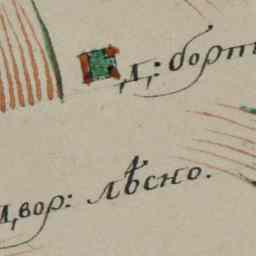 д: борт
двор: лѣсно.